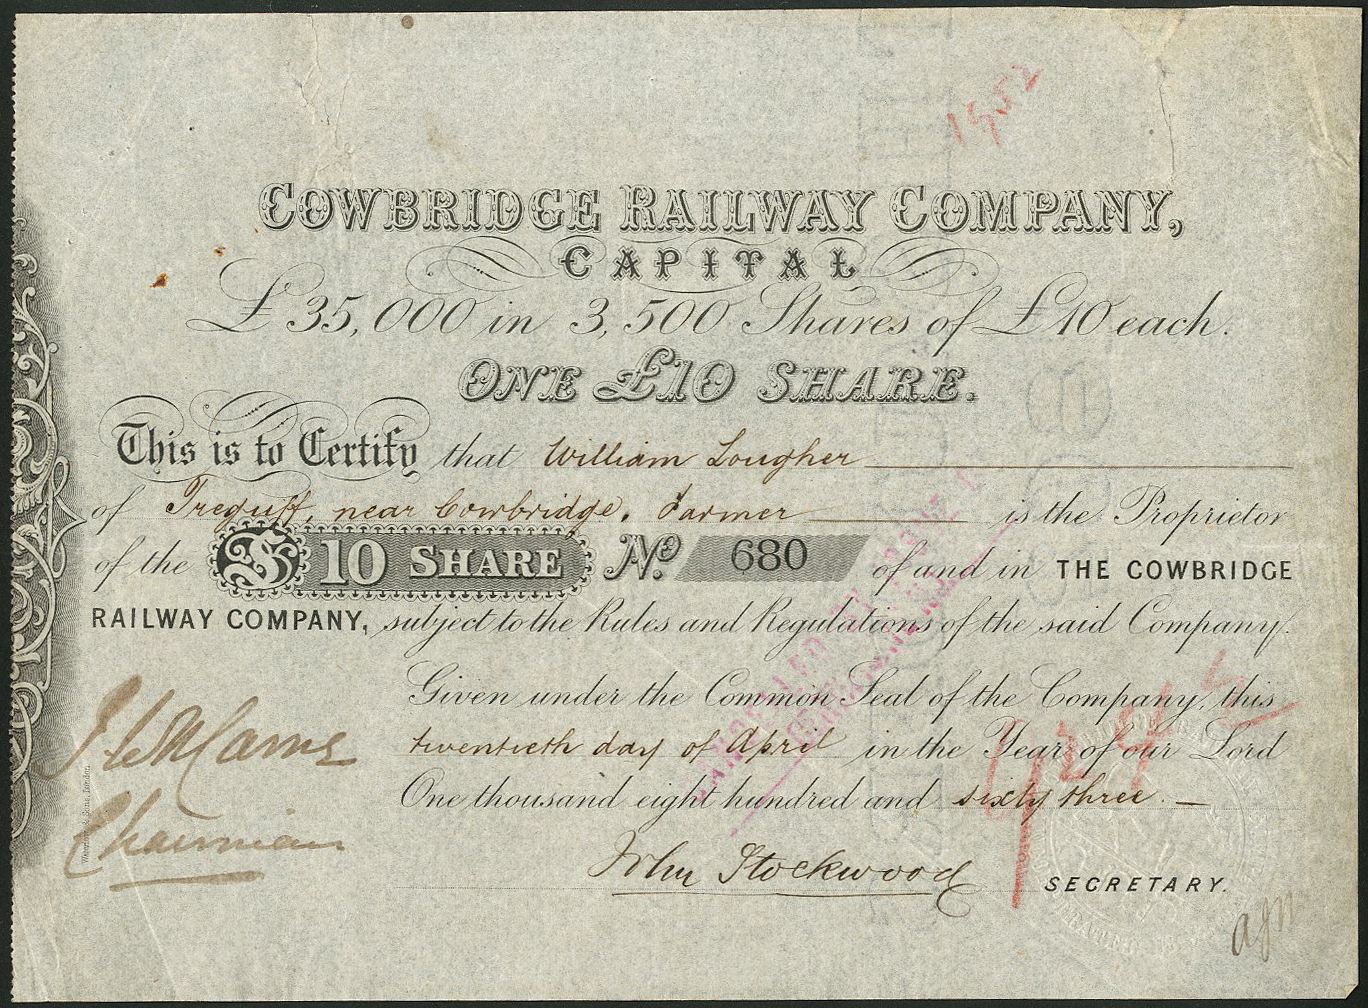 1952
COWBRIDGE RAILWAY COMPANY,
CAPITAL
£35,000 in 3,500 Shares of £10 each.
ONE £10 SHARE.
This is to Certify that William Lougher
of Treguff, near Cowbridge, Farmer is the Proprietor
of the £10 SHARE No. 680 of and in THE COWBRIDGE
RAILWAY COMPANY, subject to the Rules and Regulations of the said Company.
Given under the Common Seal of the Company, this
twentieth day of April in the Year of our Lord
One thousand eight hundred and sixty three.
Chairman
John Stockwood
SECRETARY.